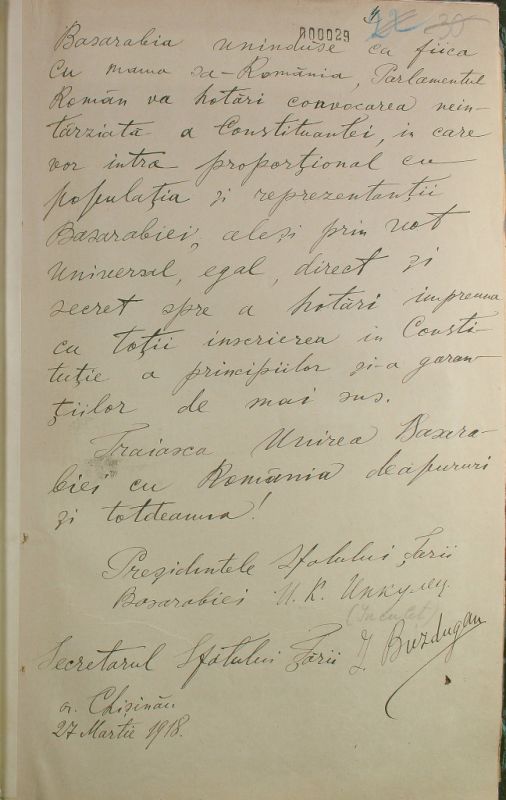 000029
Basarabia uninduse ca fiica
Cu mama sa-România, Parlamentul
Român va hotări convocarea nein-
tărziată a Constituantei, in care
vor intra proporţional cu
populaţia şi reprezentanţii
Basarabiei, aleşi prin vot
Universal, egal, direct şi
secret spre a hotări impreuna
cu toţii inscrierea in Consti-
tuţie a principiilor şi-a garan-
ţiilor de mai sus.
Traiasca Unirea Basara-
biei cu România deapururi
şi totdeauna!
Preşidintele Sfatului Ţării
Basarabiei И. К. Инкулец
(Inculet)
Secretarul Sfatului Ţării I. Buzdugan
or. Chişinău
27 Martie 1918.